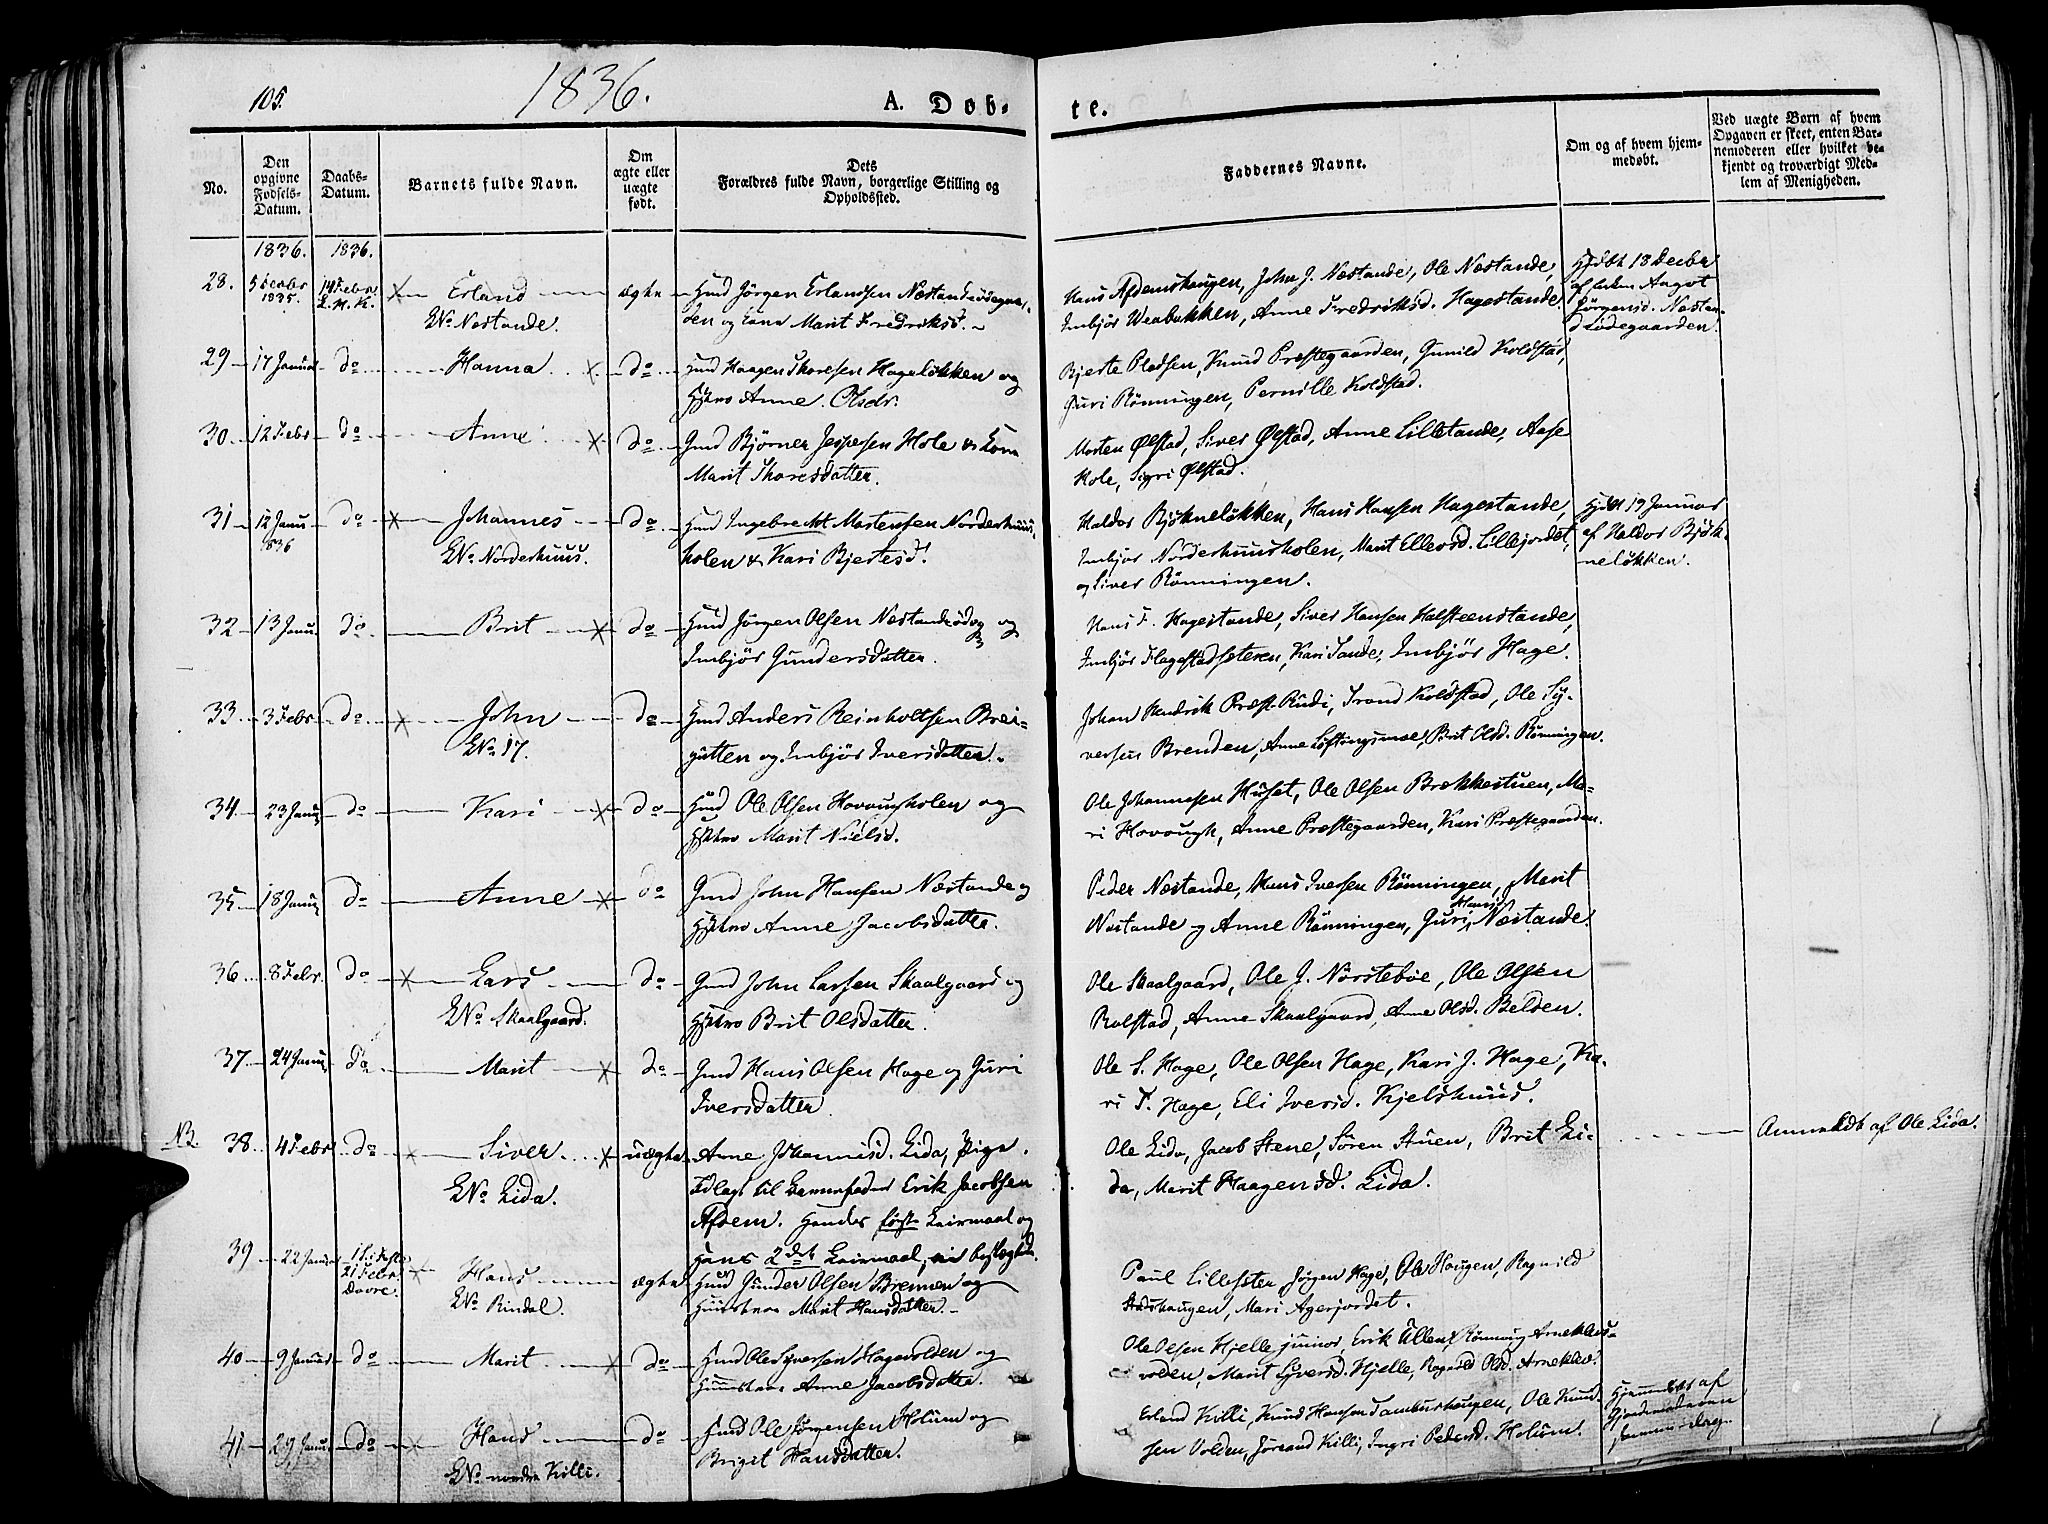 105.
1836.
A. Døb-
te.
No.
Den opgivne Fødsels-Datum.
Daabs-Datum.
Barnets fulde Navn.
Om ægte eller uægte født.
Dets Forældres fulde Navn, borgerlige Stilling og Opholdssted.
Faddernes Navne.
Om og af hvem hjemmedøbt.
Ved uægte Børn af hvem Opgaven er skeet, enten Barnemoderen eller hvilket bekjendt og troværdigt Medlem af Menigheden.
1836. 1836.
28. 5 Decbr 1835. 14 Febr. L. H. K. Erland ægte Hmd Jörgen Erlandsen Næstandödegaar-
ENo Næstande. den og Kone Marit Fredriksd.
Hans Afdemshaugen, John J. Næstande, Ole Næstande,
Imbjör Weabakken, Anne Fredriksd. Hagestande.
Hjdbt 18 Decbr
af Jörgensd. Næstan-
dödegaarden.
29 17 Januar do Hanna do Hmd Haagen Thoresen Hageløkken og
Hstro Anne Olsdr.
Bjerte Pladsen, Knud Præstegaarden, Gunild Koldstad,
Guri Rönningen, Pernille Koldstad.
30 12 Febr do Anne do Gmd Björner Jespesen Hole & Kone
Marit Thoresdatter.
Morten Ølstad, Siver Ølstad, Anne Lillestande, Aase
Hole, Sigri Ølstad.
31 12 Janu 1836 do Johannes do Hmd Ingebrecht Mortensen Norderhuus-
ENo Norderhuus. holen & Kari Bjertesd.
Haldor Bjökneløkken, Hans Hansen Hagestande,
Imbjör Norderhuusholen, Marit Ellevsd. Lillejordet,
og Siver Rönningen.
Hjdbt 19 Januar
af Haldor Bjök-
neløkken.
32 13 Janu. do Brit do Hmd Jörgen Olsen Næstandödeg og
Imbjör Gundersdatter.
Hans F. Hagestande, Siver Hansen Halsteenstande,
Imbjör Flagestadseteren, Kari Tande, Imbjör Hage.
33 3 Febr do John do Hmd Anders Reinholtsen Brei-
ENo 17. gutten og Imbjör Iversdatter.
Johan Hendrik Præst-Rudi, Trond Koldstad, Ole Sy-
versen Brenden, Anne Løftingsmoe, Brit Olsd. Rönningen.
34 23 Janu do Kari do Hmd Ole Olsen Hovoughholen og
Hstro Marit Nielsd.
Ole Johannesen Huset, Ole Olsen Brækkestuen, Ma-
ri Hovough, Anne Præstegaarden, Kari Præstegaarden.
35 18 Janu do Anne do Gmd John Hansen Næstande og
Hstro Anne Jacobsdatter.
Peder Næstande, Hans Iversen Rönningen, Marit
Næstande og Anne Rönningen, Guri Hansd. Næstande.
36 8 Febr. do Lars do Gmd John Larsen Skaalgaard og
ENo Skaalgaard. Hstro Brit Olsdatter.
Ole Skaalgaard, Ole J. Nörsteböe, Ole Olsen
Rolstad, Anne Skaalgaard, Anne Olsd. Belden.
37 24 Janu do Marit do Gmd Hans Olsen Hage og Guri
Iversdatter
Ole S. Hage, Ole Olsen Hage, Kari J. Hage, Ka-
ri T. Hage, Eli Iversd. Kjelshuus.
NB. 38 4 Febr do Siver uægte Anne Johannisd. Lida, Pige.
ENo Lida. Udlagt til Barnefader Erik Jacobsen
Afdem. Hendes første Leiermaal og
Hans 2det Leiermaal,
Ole Lida, Jacob Stene, Sören Stuen, Brit Li-
da, Marit Haagensd. Lida.
Anmeldt af Ole Lida.
39 22 Januar 21 Febr. Dovre. Hans ægte Hmd Gunder Olsen Brennen og
ENo Rindal. Huustroe Marit Hansdatter.
Paul Lillesæter Jörgen Hage, Ole Haugen, Ragnild
Stadshaugen, Mari Agerjordet.
40 9 Januar do Marit do Hmd Ole Syversen Hagevolden og
Huustroe Anne Jacobsdatter.
Ole Olsen Hjelle junior, Erik Ullen, Rönnaug Arneklev-
volden, Marit Syversd. Hjelle, Ragnild Olsd. Arneklev.
41 29 Janu. do Hans do Hmd Ole Jörgensen Holum og
ENo nordre Killi. Briget Hansdatter.
Erland Killi, Knud Hansen Jambushaugen, Ole Knud-
sen Volden, Jörand Killi, Ingri Pedersd. Holum.
Hjemmedøbt af
Gjordemoderen